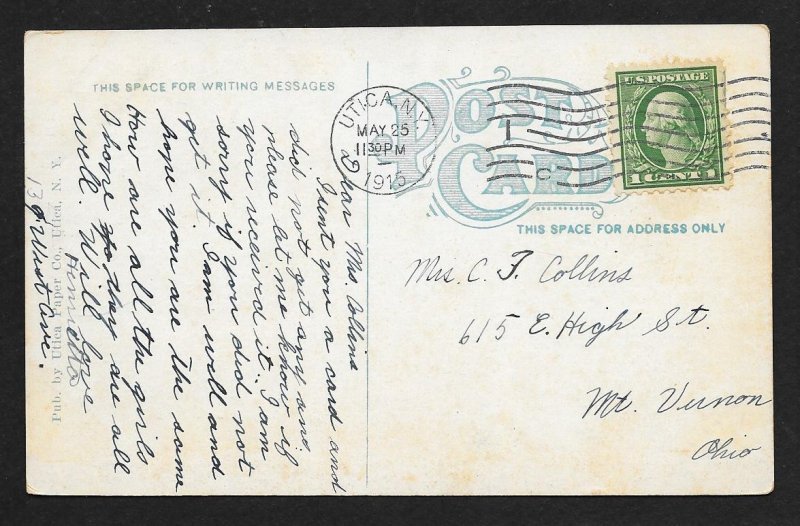 THIS SPACE FOR WRITING MESSAGES
POST CARD
UTICA, N.Y.
MAY 25
11 30 PM
1915
U.S. POSTAGE
1 CENT 1
THIS SPACE FOR ADDRESS ONLY
Mrs. C. F. Collins
615 E. High St.
Mt. Vernon
Ohio
Dear Mrs. Collins
I sent you a card and
did not get any ans
please let me know if
you received it. I am
sorry if you did not
get it. I am well and
hope you are the same
How are all the girls
I hope they are all
well. Will love
Henrietta
13 West Ave.
Pub. by Utica Paper Co., Utica, N. Y.